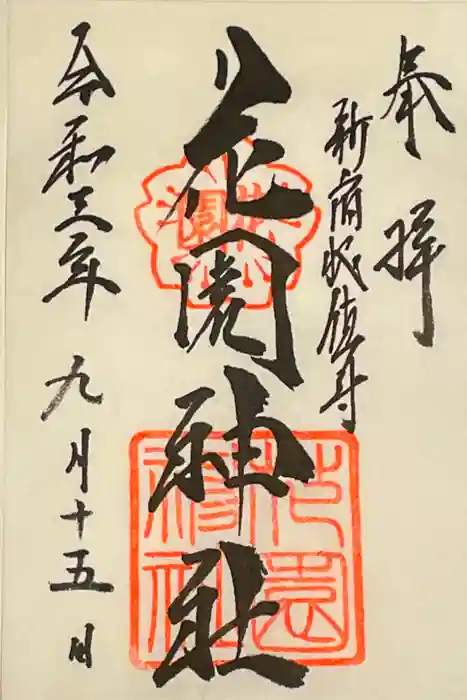 奉拝
新宿総鎮守
花園神社
令和三年九月十五日
花園
神社